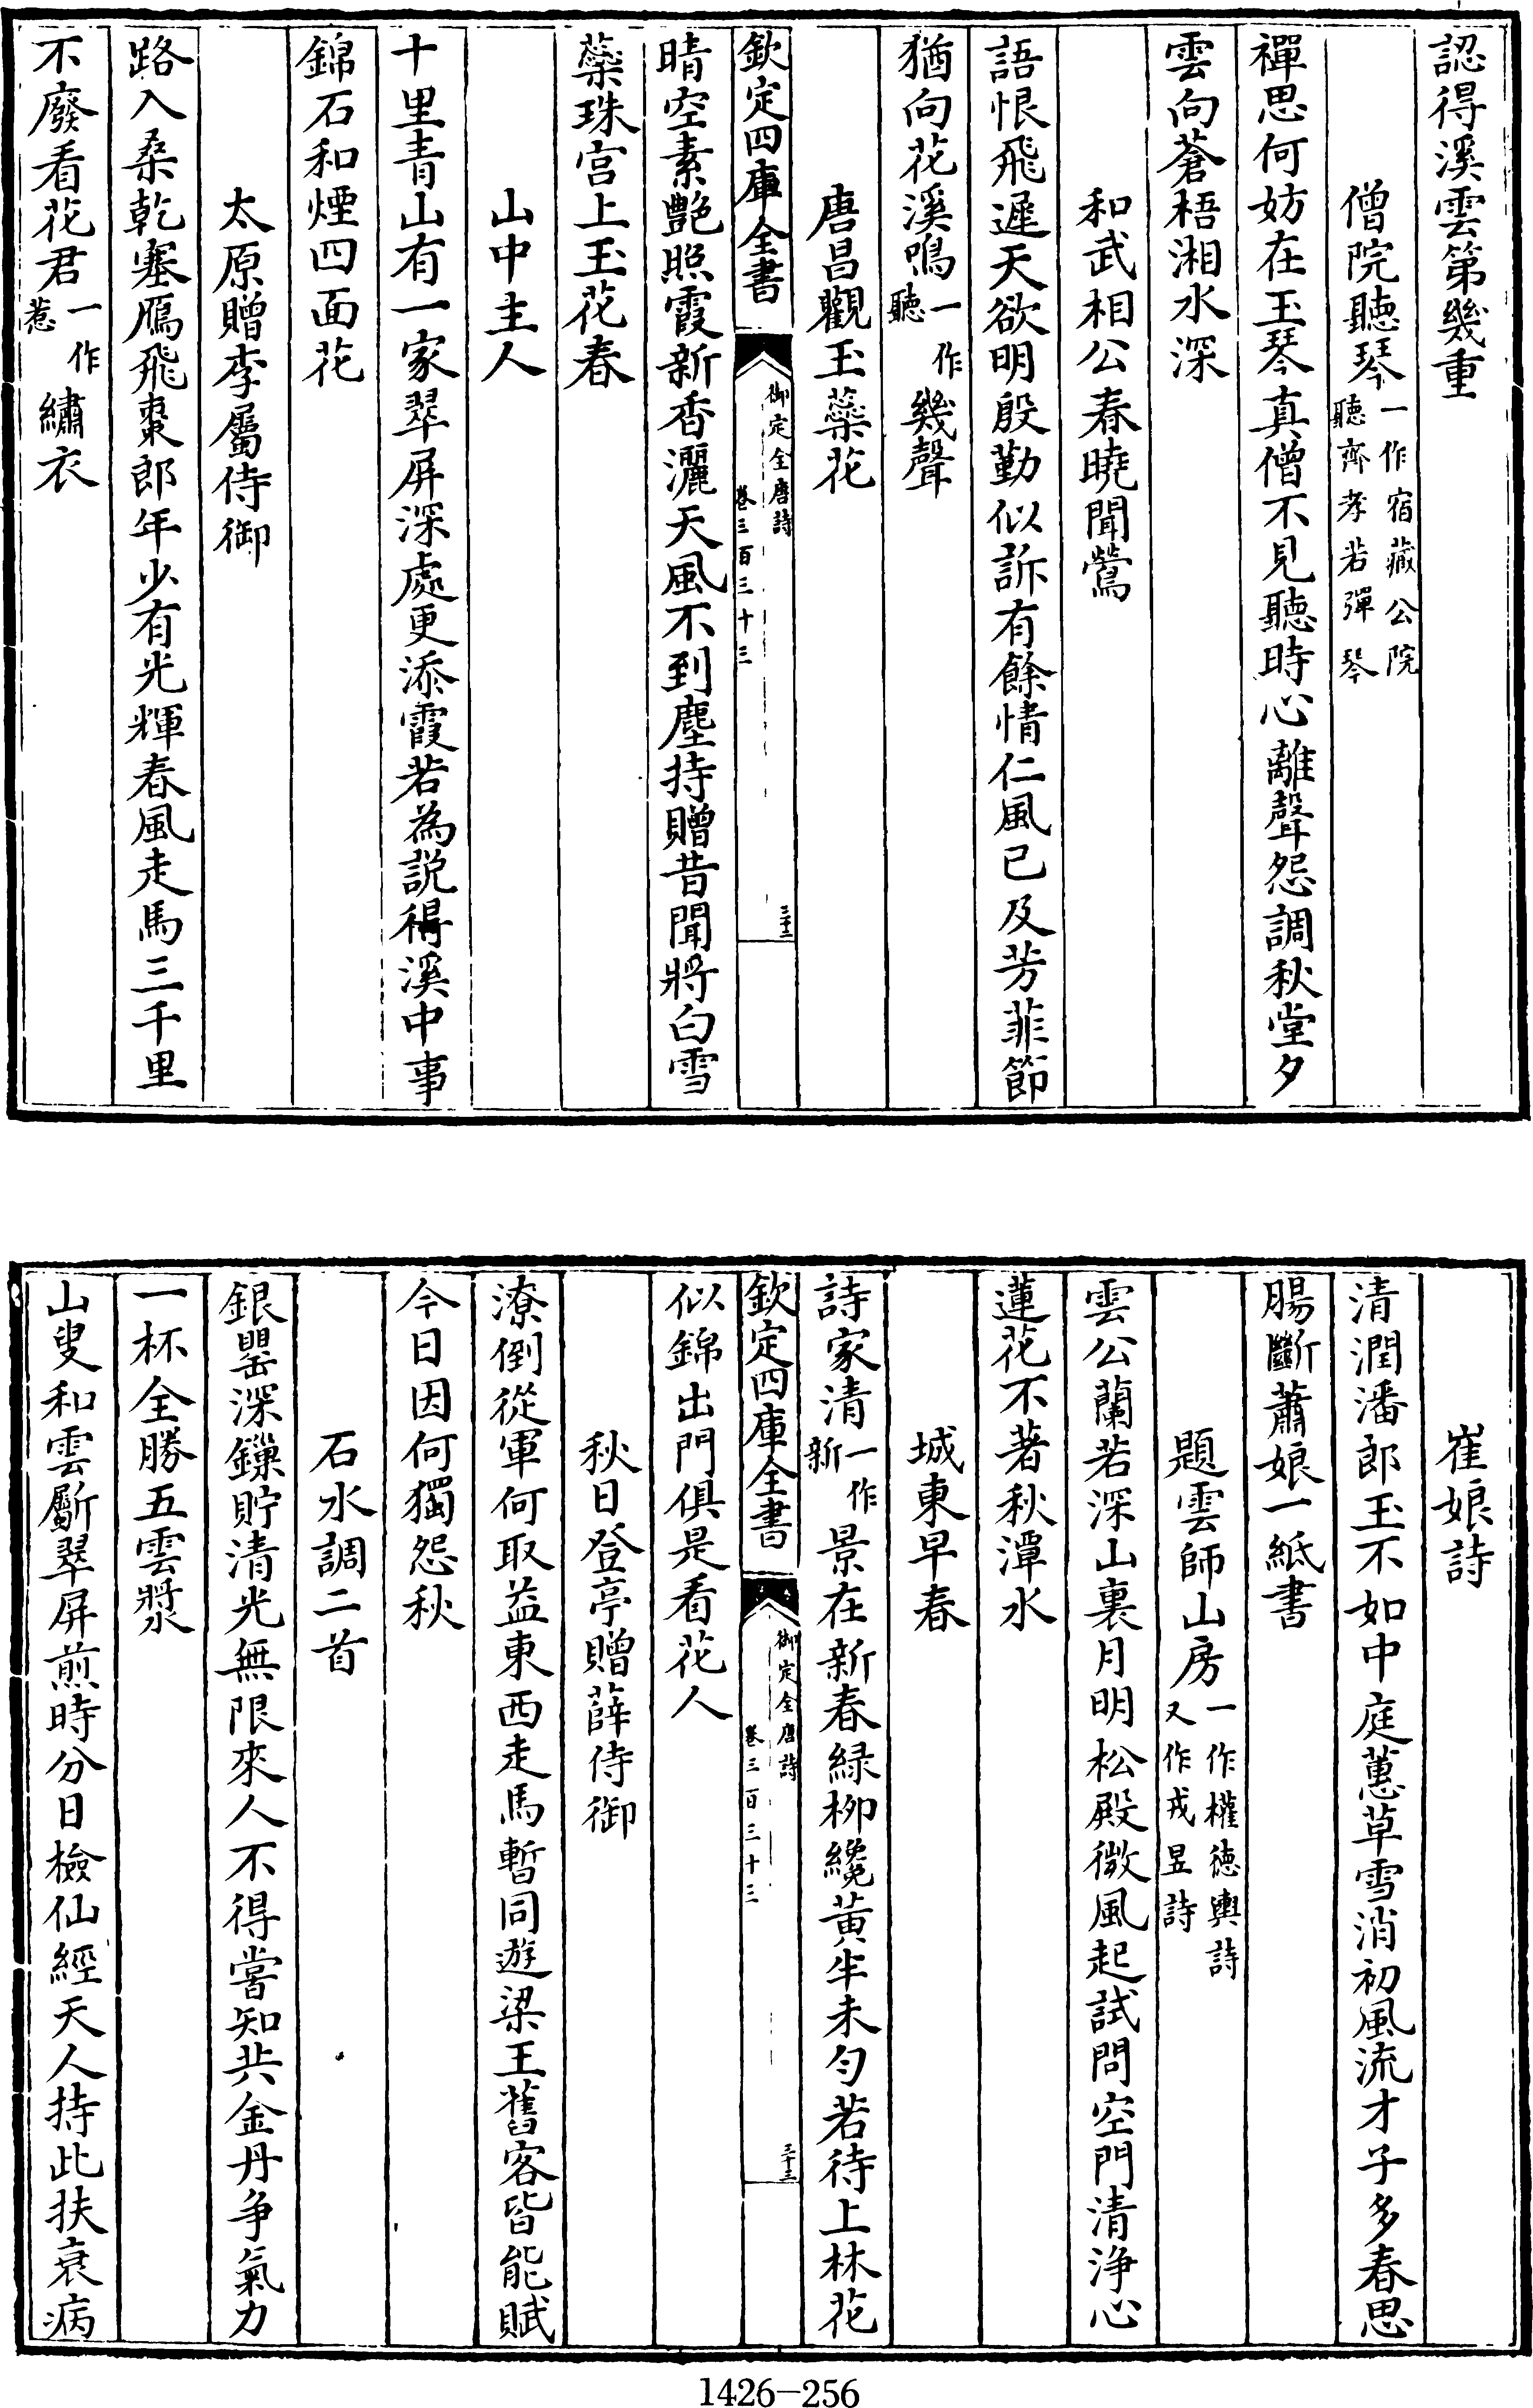 認得溪雲第幾重
僧院聽琴一作宿藏公院聽齊孝若彈琴
禪思何妨在玉琴真僧不見聽時心離聲怨調秋堂夕
雲向蒼梧湘水深
和武相公春曉聞鶯
語恨飛遲天欲明殷勤似訴有餘情仁風已及芳菲節
猶向花溪鳴一作聽幾聲
唐昌觀玉蘂花
欽定四庫全書
御定全唐詩
卷三百三十三
三十二
晴空素艶照霞新香灑天風不到塵持贈昔聞將白雪
蘂珠宫上玉花春
山中主人
十里青山有一家翠屏深處更添霞若為説得溪中事
錦石和煙四面花
太原贈李屬侍御
路入桑乾塞鴈飛棗郎年少有光輝春風走馬三千里
不廢看花君一作惹繡衣
崔娘詩
清潤潘郎玉不如中庭蕙草雪消初風流才子多春思
腸斷蕭娘一紙書
題雲師山房一作權徳輿詩又作戎昱詩
雲公蘭若深山裏月明松殿微風起試問空門清浄心
蓮花不著秋潭水
城東早春
詩家清一作新景在新春緑柳纔黄半未勻若待上林花
欽定四庫全書
御定全唐詩
卷三百三十三
三十三
似錦出門俱是看花人
秋日登亭贈薛侍御
潦倒從軍何取益東西走馬暫同遊梁王舊客皆能賦
今日因何獨怨秋
石水調二首
銀罌深鏁貯清光無限來人不得嘗知共金丹争氣力
一杯全勝五雲漿
山叟和雲斸翠屏煎時分日檢仙經天人持此扶衰病
1426-256